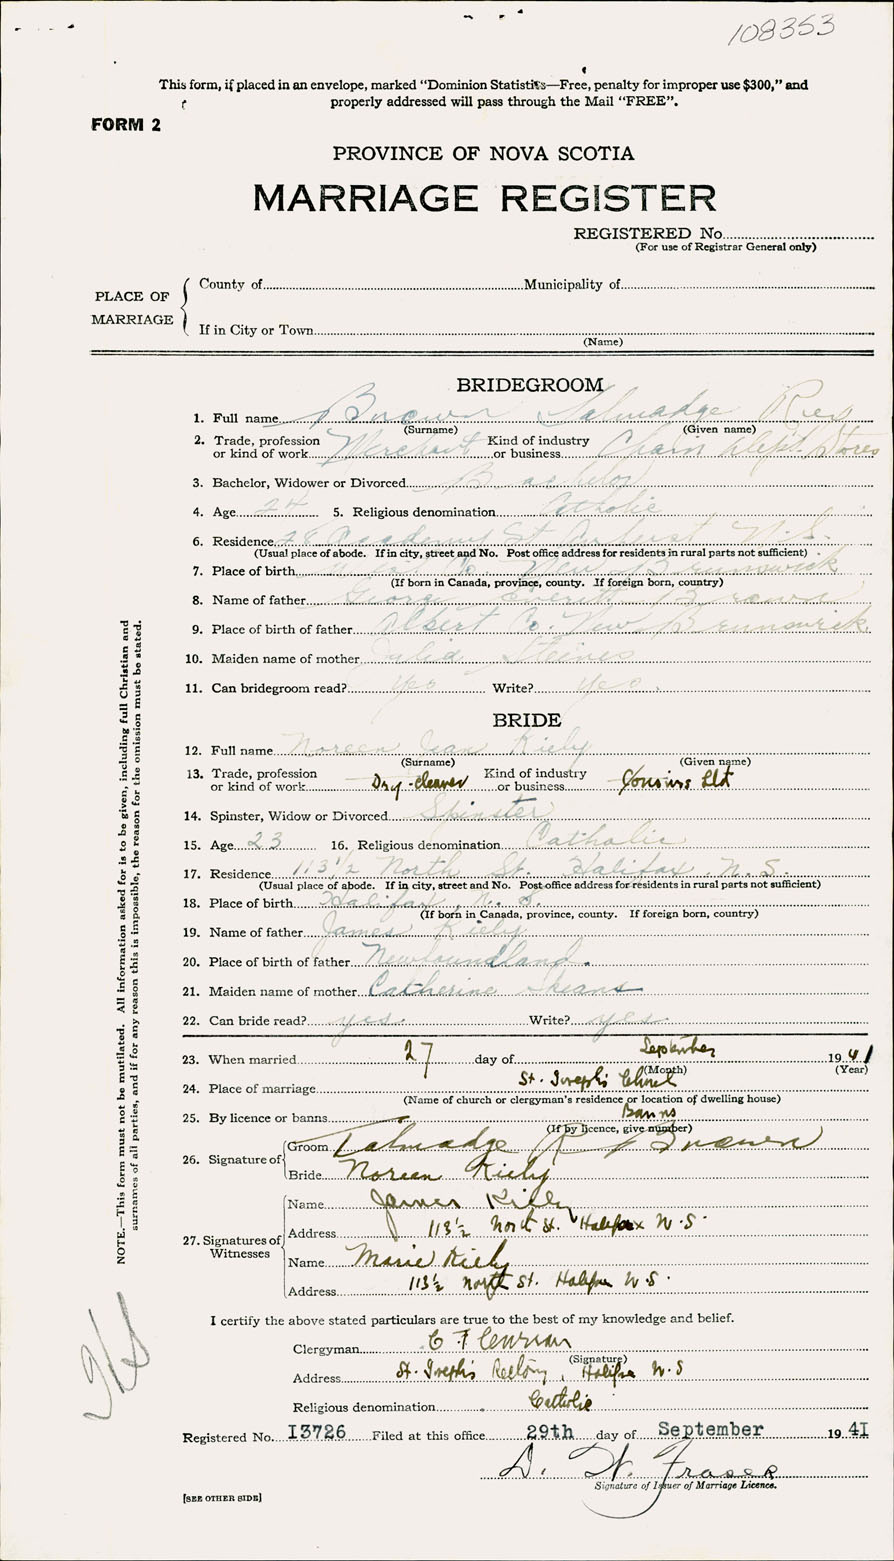 108353
This form, if placed in an envelope, marked "Dominion Statistics—Free, penalty for improper use $300," and
properly addressed will pass through the Mail "FREE".
FORM 2
PROVINCE OF NOVA SCOTIA
MARRIAGE REGISTER
REGISTERED No.
(For use of Registrar General only)
PLACE OF MARRIAGE
County of Municipality of
If in City or Town
(Name)
BRIDEGROOM
1. Full name Brown Talmadge
(Surname) (Given name)
2. Trade, profession or kind of work Merchant Kind of industry or business Chain Dept. Stores
3. Bachelor, Widower or Divorced Bachelor
4. Age 24 5. Religious denomination Catholic
6. Residence 28 Academy St Amherst N.S.
(Usual place of abode. If in city, street and No. Post office address for residents in rural parts not sufficient)
7. Place of birth Co. New Brunswick
(If born in Canada, province, county. If foreign born, country)
8. Name of father George Everett Brown
9. Place of birth of father Albert Co. New Brunswick
10. Maiden name of mother Julia Steeves
11. Can bridegroom read? yes Write? yes
BRIDE
12. Full name Noreen Jean Kiely
(Surname) (Given name)
13. Trade, profession or kind of work Dry-cleaner Kind of industry or business Cousins Ltd
14. Spinster, Widow or Divorced Spinster
15. Age 23 16. Religious denomination Catholic
17. Residence 113½ North St. Halifax N.S.
(Usual place of abode. If in city, street and No. Post office address for residents in rural parts not sufficient)
18. Place of birth Halifax, N.S.
(If born in Canada, province, county. If foreign born, country)
19. Name of father James Kiely
20. Place of birth of father Newfoundland.
21. Maiden name of mother Catherine Skeans
22. Can bride read? yes. Write? yes.
23. When married 27 day of September 1941
(Month) (Year)
24. Place of marriage St. Joseph's Church
(Name of church or clergyman's residence or location of dwelling house)
25. By licence or banns Banns
(If by licence, give number)
26. Signature of
Groom Talmadge R Brown
Bride Noreen Kiely
27. Signatures of Witnesses
Name James Kiely
Address 113½ North St. Halifax N.S.
Name Marie Kiely
Address 113½ North St. Halifax N.S.
I certify the above stated particulars are true to the best of my knowledge and belief.
Clergyman C F
(Signature)
Address St. Joseph's Rectory, Halifax N.S
Religious denomination Catholic
Registered No. 13726 Filed at this office 29th day of September 1941
D. W. Fraser
Signature of Issuer of Marriage Licence.
[SEE OTHER SIDE]
NOTE.—This form must not be mutilated. All information asked for is to be given, including full Christian and
surnames of all parties, and if for any reason this is impossible, the reason for the omission must be stated.